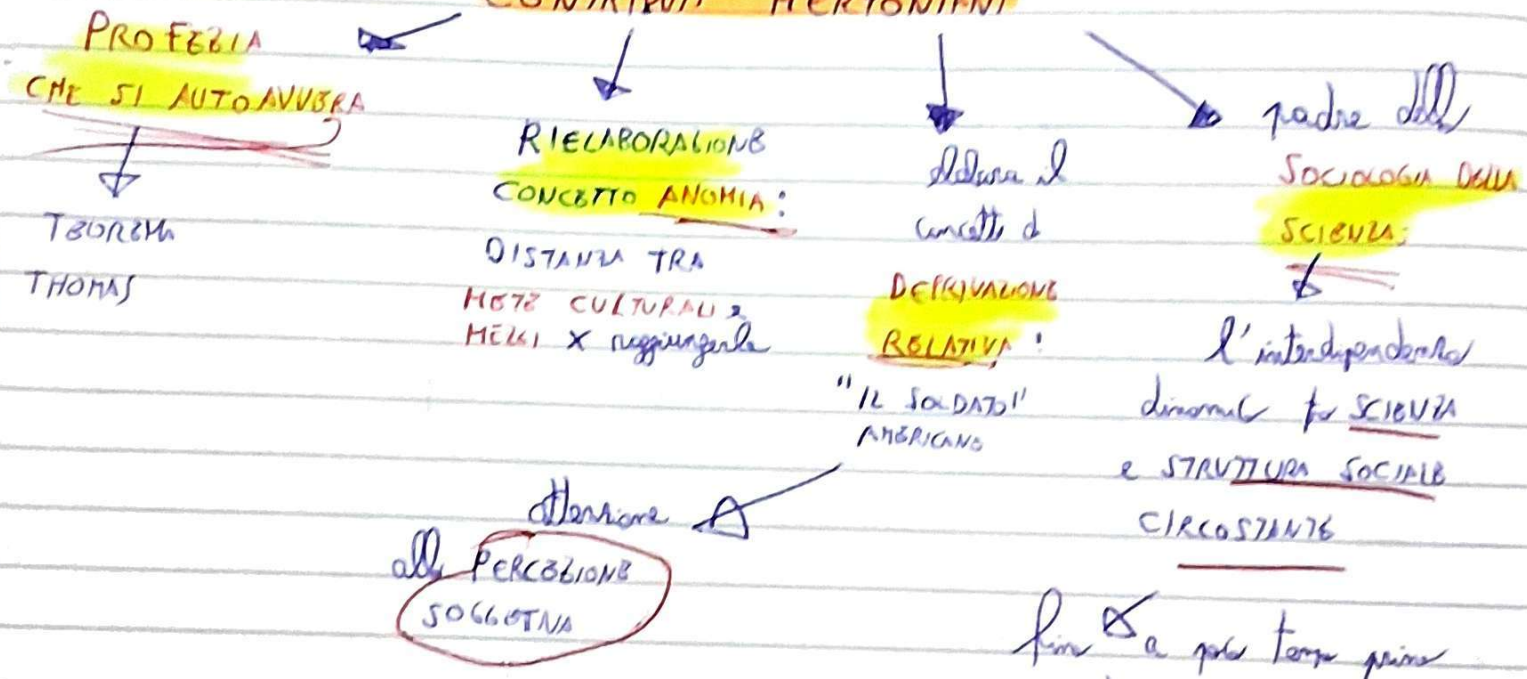 CONTRIBUTI MERTONIANI
PROFEZIA
CHE SI AUTOAVVERA
TEOREMA
THOMAS
RIELABORAZIONE
CONCETTO ANOMIA:
DISTANZA TRA
METE CULTURALI e
MEZZI X raggiungerle
elabora il
concetto di
DEPRIVAZIONE
RELATIVA:
"IL SOLDATO"
AMERICANO
attenzione
alla PERCEZIONE
SOGGETTIVA
padre della
SOCIOLOGIA DELLA
SCIENZA:
l'interdipendenza
dinamica tra SCIENZA
e STRUTTURA SOCIALE
CIRCOSTANTE
fino a poco tempo prima